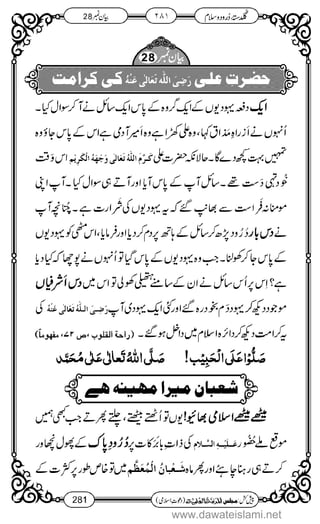 گلدستۂ دُرود و سلام ۲۸۱ بیان نمبر 28
بیان نمبر 28
حضرتِ علی رَضِیَ اللہُ تَعَالٰی عَنْہُ کی کرامت
ایک دفعہ یہودیوں کے ایک گروہ کے پاس ایک سائل نے آکر سوال کیا۔
اُنہوں نے اَزْ راہِ مذاق کہا، وہ علی کھڑا ہے وہ امیر آدمی ہے اس کے پاس جاؤ وہ
تمہیں بہت کچھ دے گا۔ حالانکہ حضرت علی کَرَّمَ اللہُ تَعَالٰی وَجْہَہُ الْکَرِیْم اس وقت
خُود تہی دَست تھے۔ سائل آپ کے پاس آیا اور آتے ہی سوال کیا۔ آپ اپنی
مومنانہ فِراست سے بھانپ گئے کہ یہ یہودیوں کی شرارت ہے۔ چنانچہ آپ
نے دس بار دُرُود پڑھ کر سائل کے ہاتھ پر دم کردیا اور فرمایا، اس مٹھی کو یہودیوں
کے پاس جاکر کھولنا۔ جب وہ یہودیوں کے پاس گیا تو اُنہوں نے پوچھا کیا دیا
ہے؟ اِس پر اُس سائل نے ان کے سامنے ہتھیلی کھولی تو اس میں دس اَشْرفیاں
موجود دیکھ کر یہودی دم بخود رہ گئے اور کئی ایک یہودی آپ رَضِیَ اللہُ تَعَالٰی عَنْہُ کی
یہ کرامت دیکھ کر دائرہ اسلام میں داخل ہوگئے۔ (راحة القلوب ،ص ۷۲، مفہوماً)
صَلُّوْا عَلَی الْحَبِیْب! صَلَّی اللہُ تَعَالٰی عَلٰی مُحَمَّد
شعبان میرا مہینہ ہے
میٹھے میٹھے اسلامی بھائیو! یوں تو اُٹھتے بیٹھتے، چلتے پھرتے جب بھی ہمیں
موقع ملے حُضُور عَلَیْہِ السَّلَام کی ذاتِ بابرکات پر دُرُودِ پاک کے پھول نچھاور
کرتے ہی رہنا چاہئے اور پھر ماہِ شَعْبَانُ الْمُعَظَّم میں تو خاص طور پر کثرت کے
281 پیش کش: مجلس اَلْمَدِیْنَۃُ الْعِلْمِیَّۃ (دعوتِ اسلامی)
www.dawateislami.net